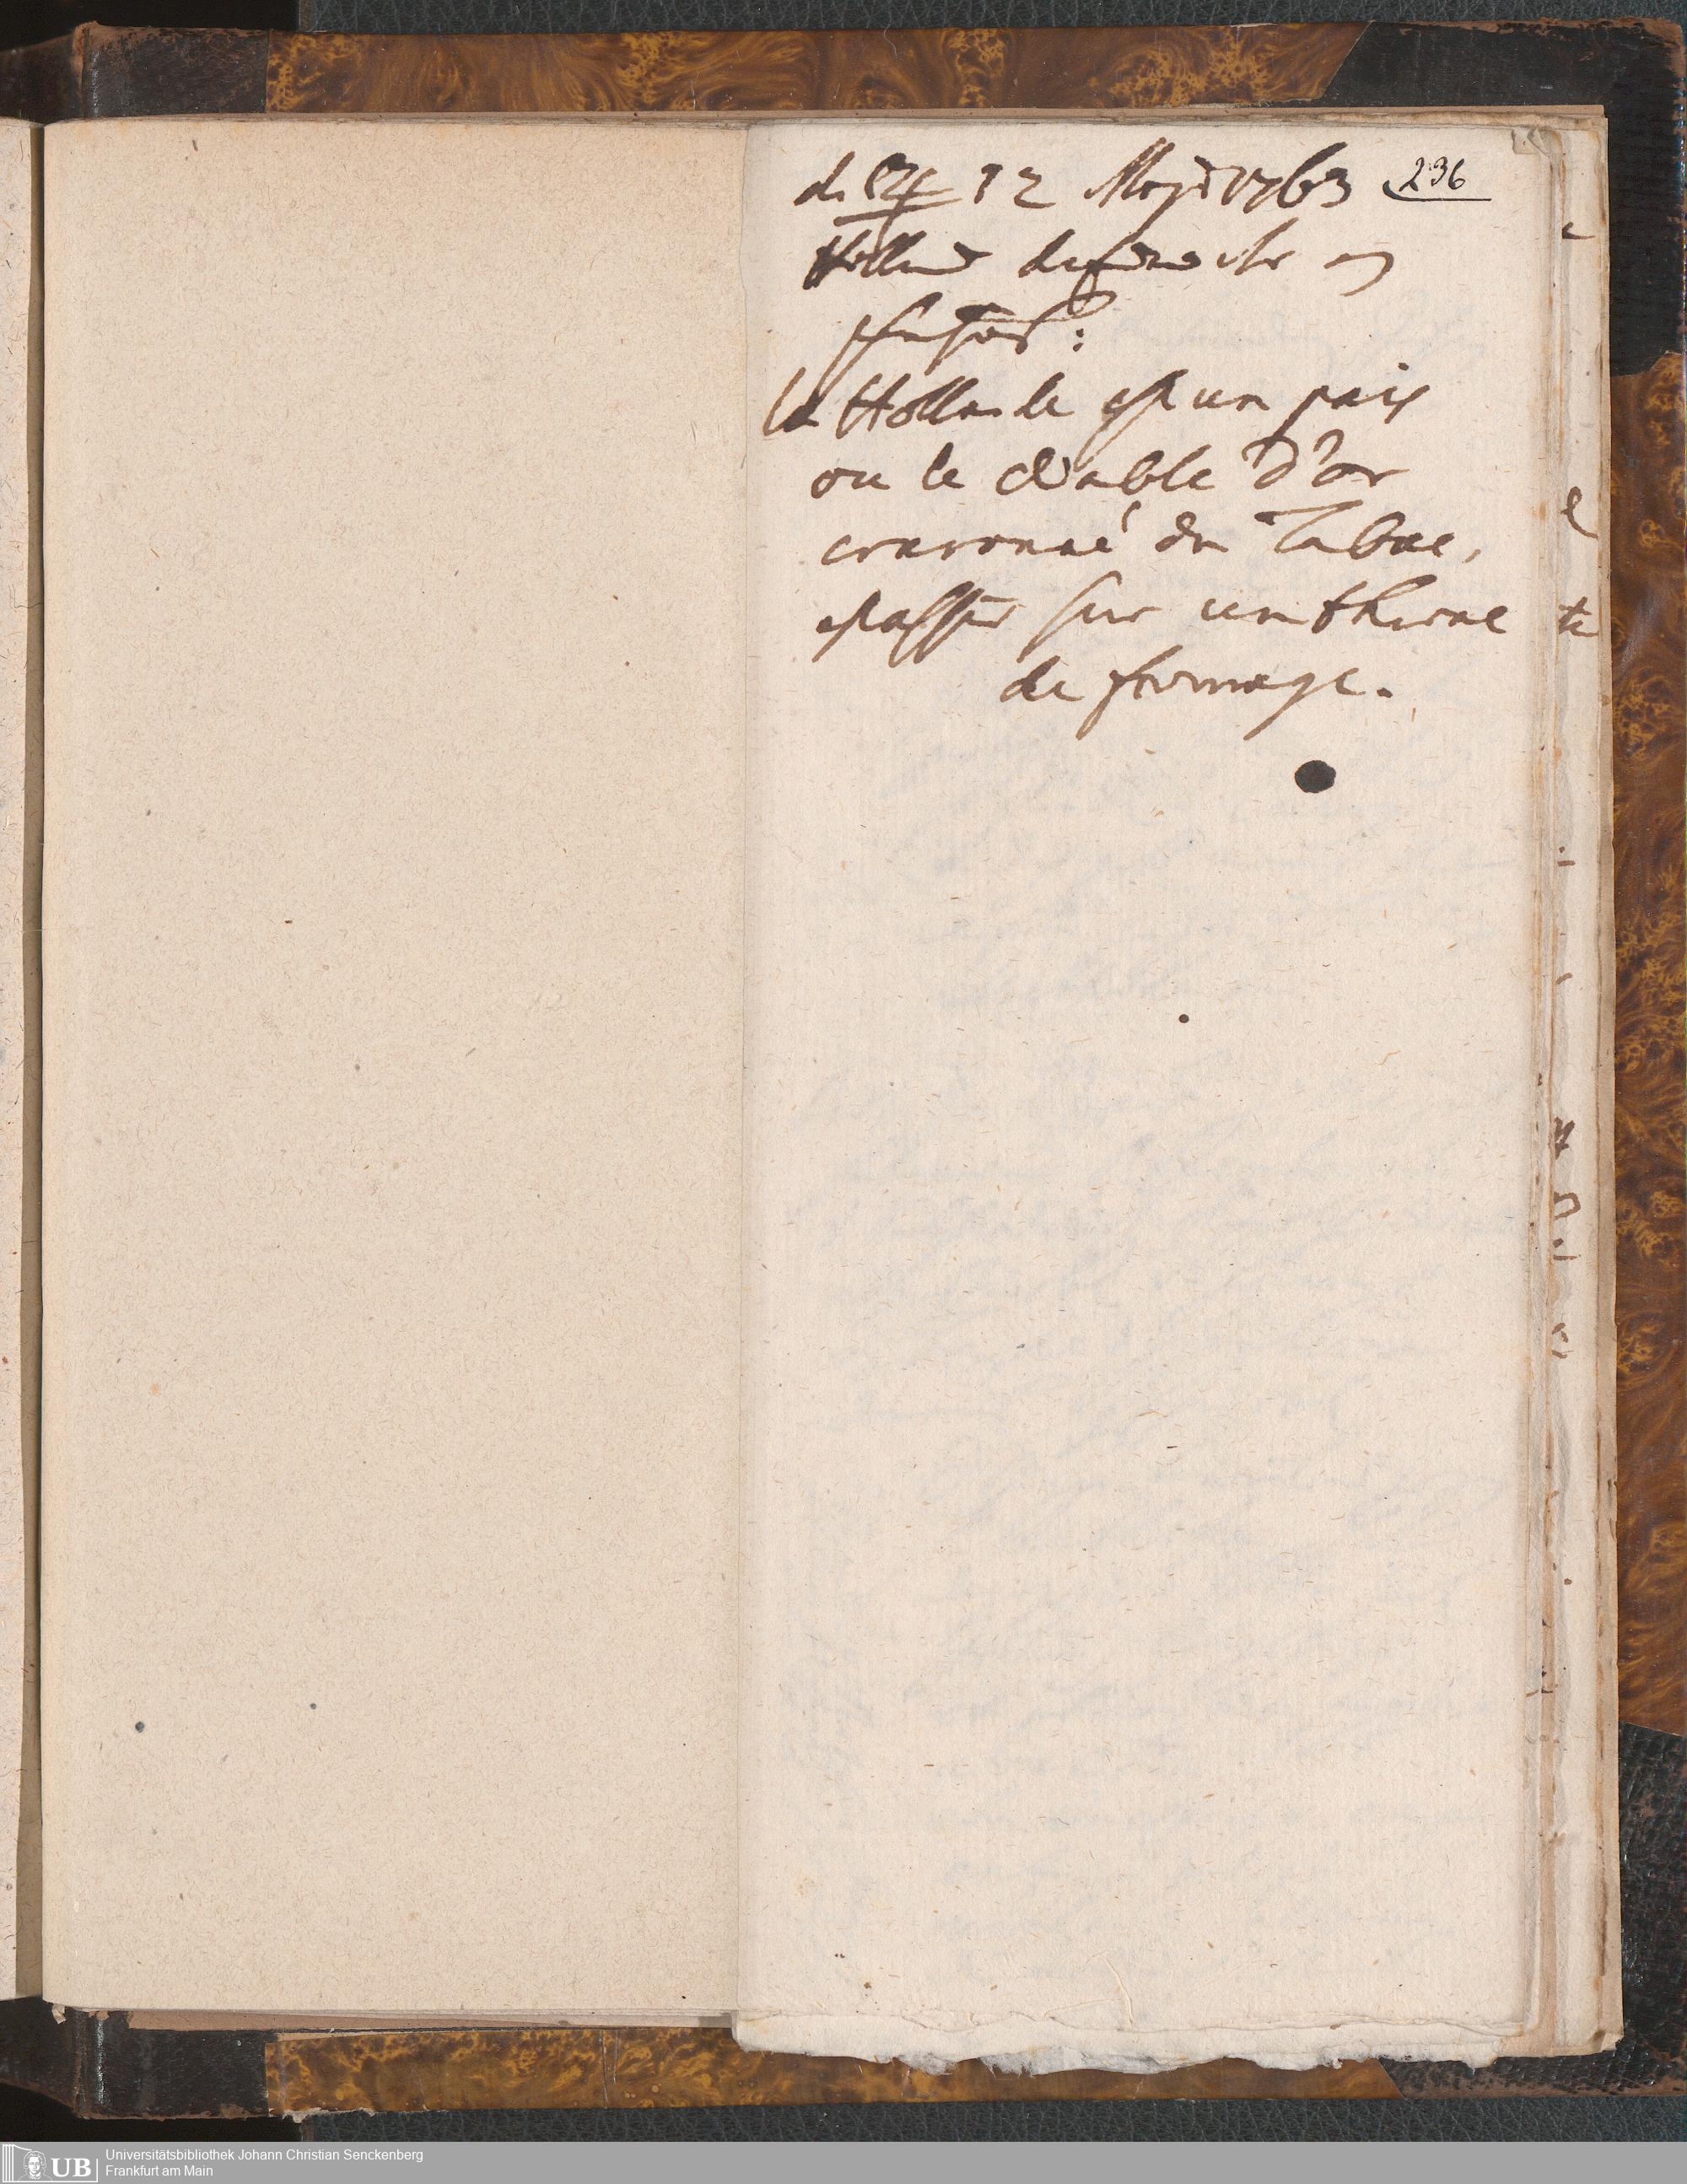 12 Maji 1763 236
Holland
la Hollande est un païs
ou le diable d'or
couronné du Tabac,
est assis sur un throne
de fromage.
Universitätsbibliothek Johann Christian Senckenberg
Frankfurt am Main
UB